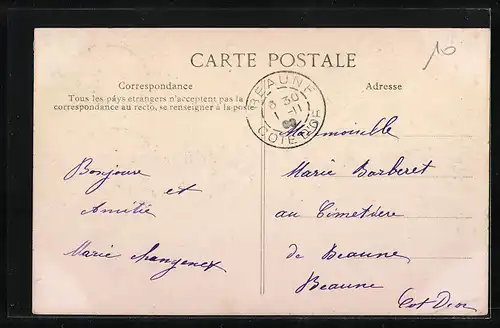 10
CARTE POSTALE
Correspondance
Tous les pays etrangers n'acceptent pas la
correspondance au recto, se renseigner à la poste
Adresse
BEAUNE
8 30
1 - 11
COTE D'OR
Bonjour
et
Amitié
Marie
Mademoiselle
Marie Barberet
au Cimetière
de Beaune
Beaune
Cot Dor